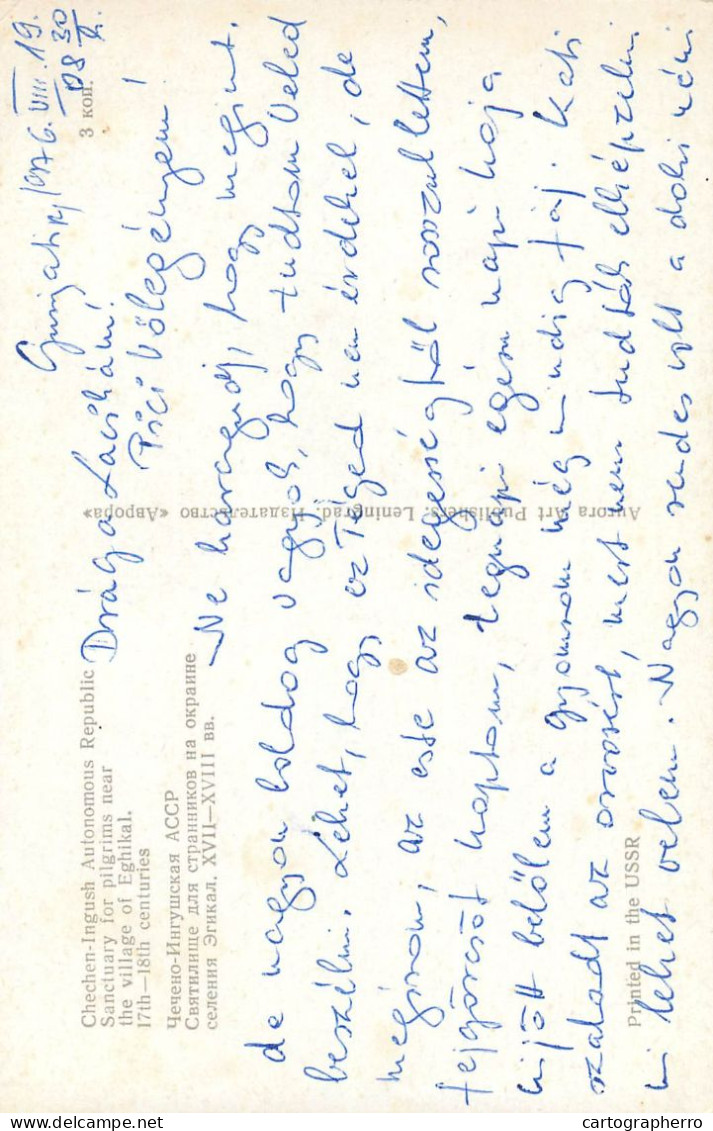 Gurzatij, 1976. VIII. 19.
08 30 h.
Drága Lacikám!
Pici Vőlegényem!
Ne haragudj, hogy megint,
de nagyon boldog vagyok, hogy tudtam Veled
beszélni. Lehet, hogy ez Téged nem érdekel, de
megírom, az este az idegességtől rosszul lettem,
fejgörcsöt kaptam, tegnapi egész napi kaja
kijött belőlem a gyomrom még mindig fáj. Kati
szaladt az orvosért, mert nem tudták elképzelni
mi lehet velem. Nagyon rendes volt a doki néni
Chechen-Ingush Autonomous Republic
Sanctuary for pilgrims near
the village of Eghikal.
17th—18th centuries
Чечено-Ингушская АССР
Святилище для странников на окраине
селения Эгикал. XVII—XVIII вв.
3 коп.
Aurora Art Publishers. Leningrad. Издательство «Аврора»
Printed in the USSR
delcampe.net
cartographerro